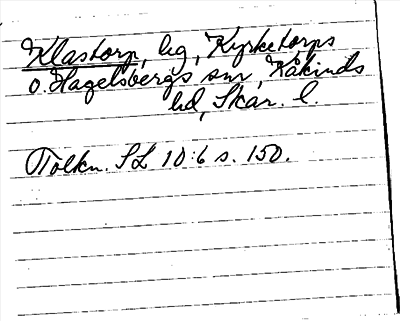 Klastorp, lég, Kyrketorps
o. Hagelsbergs snr, Kåkinds
hd, Skar. l.
Tolkn. SL 10:6 s. 150.